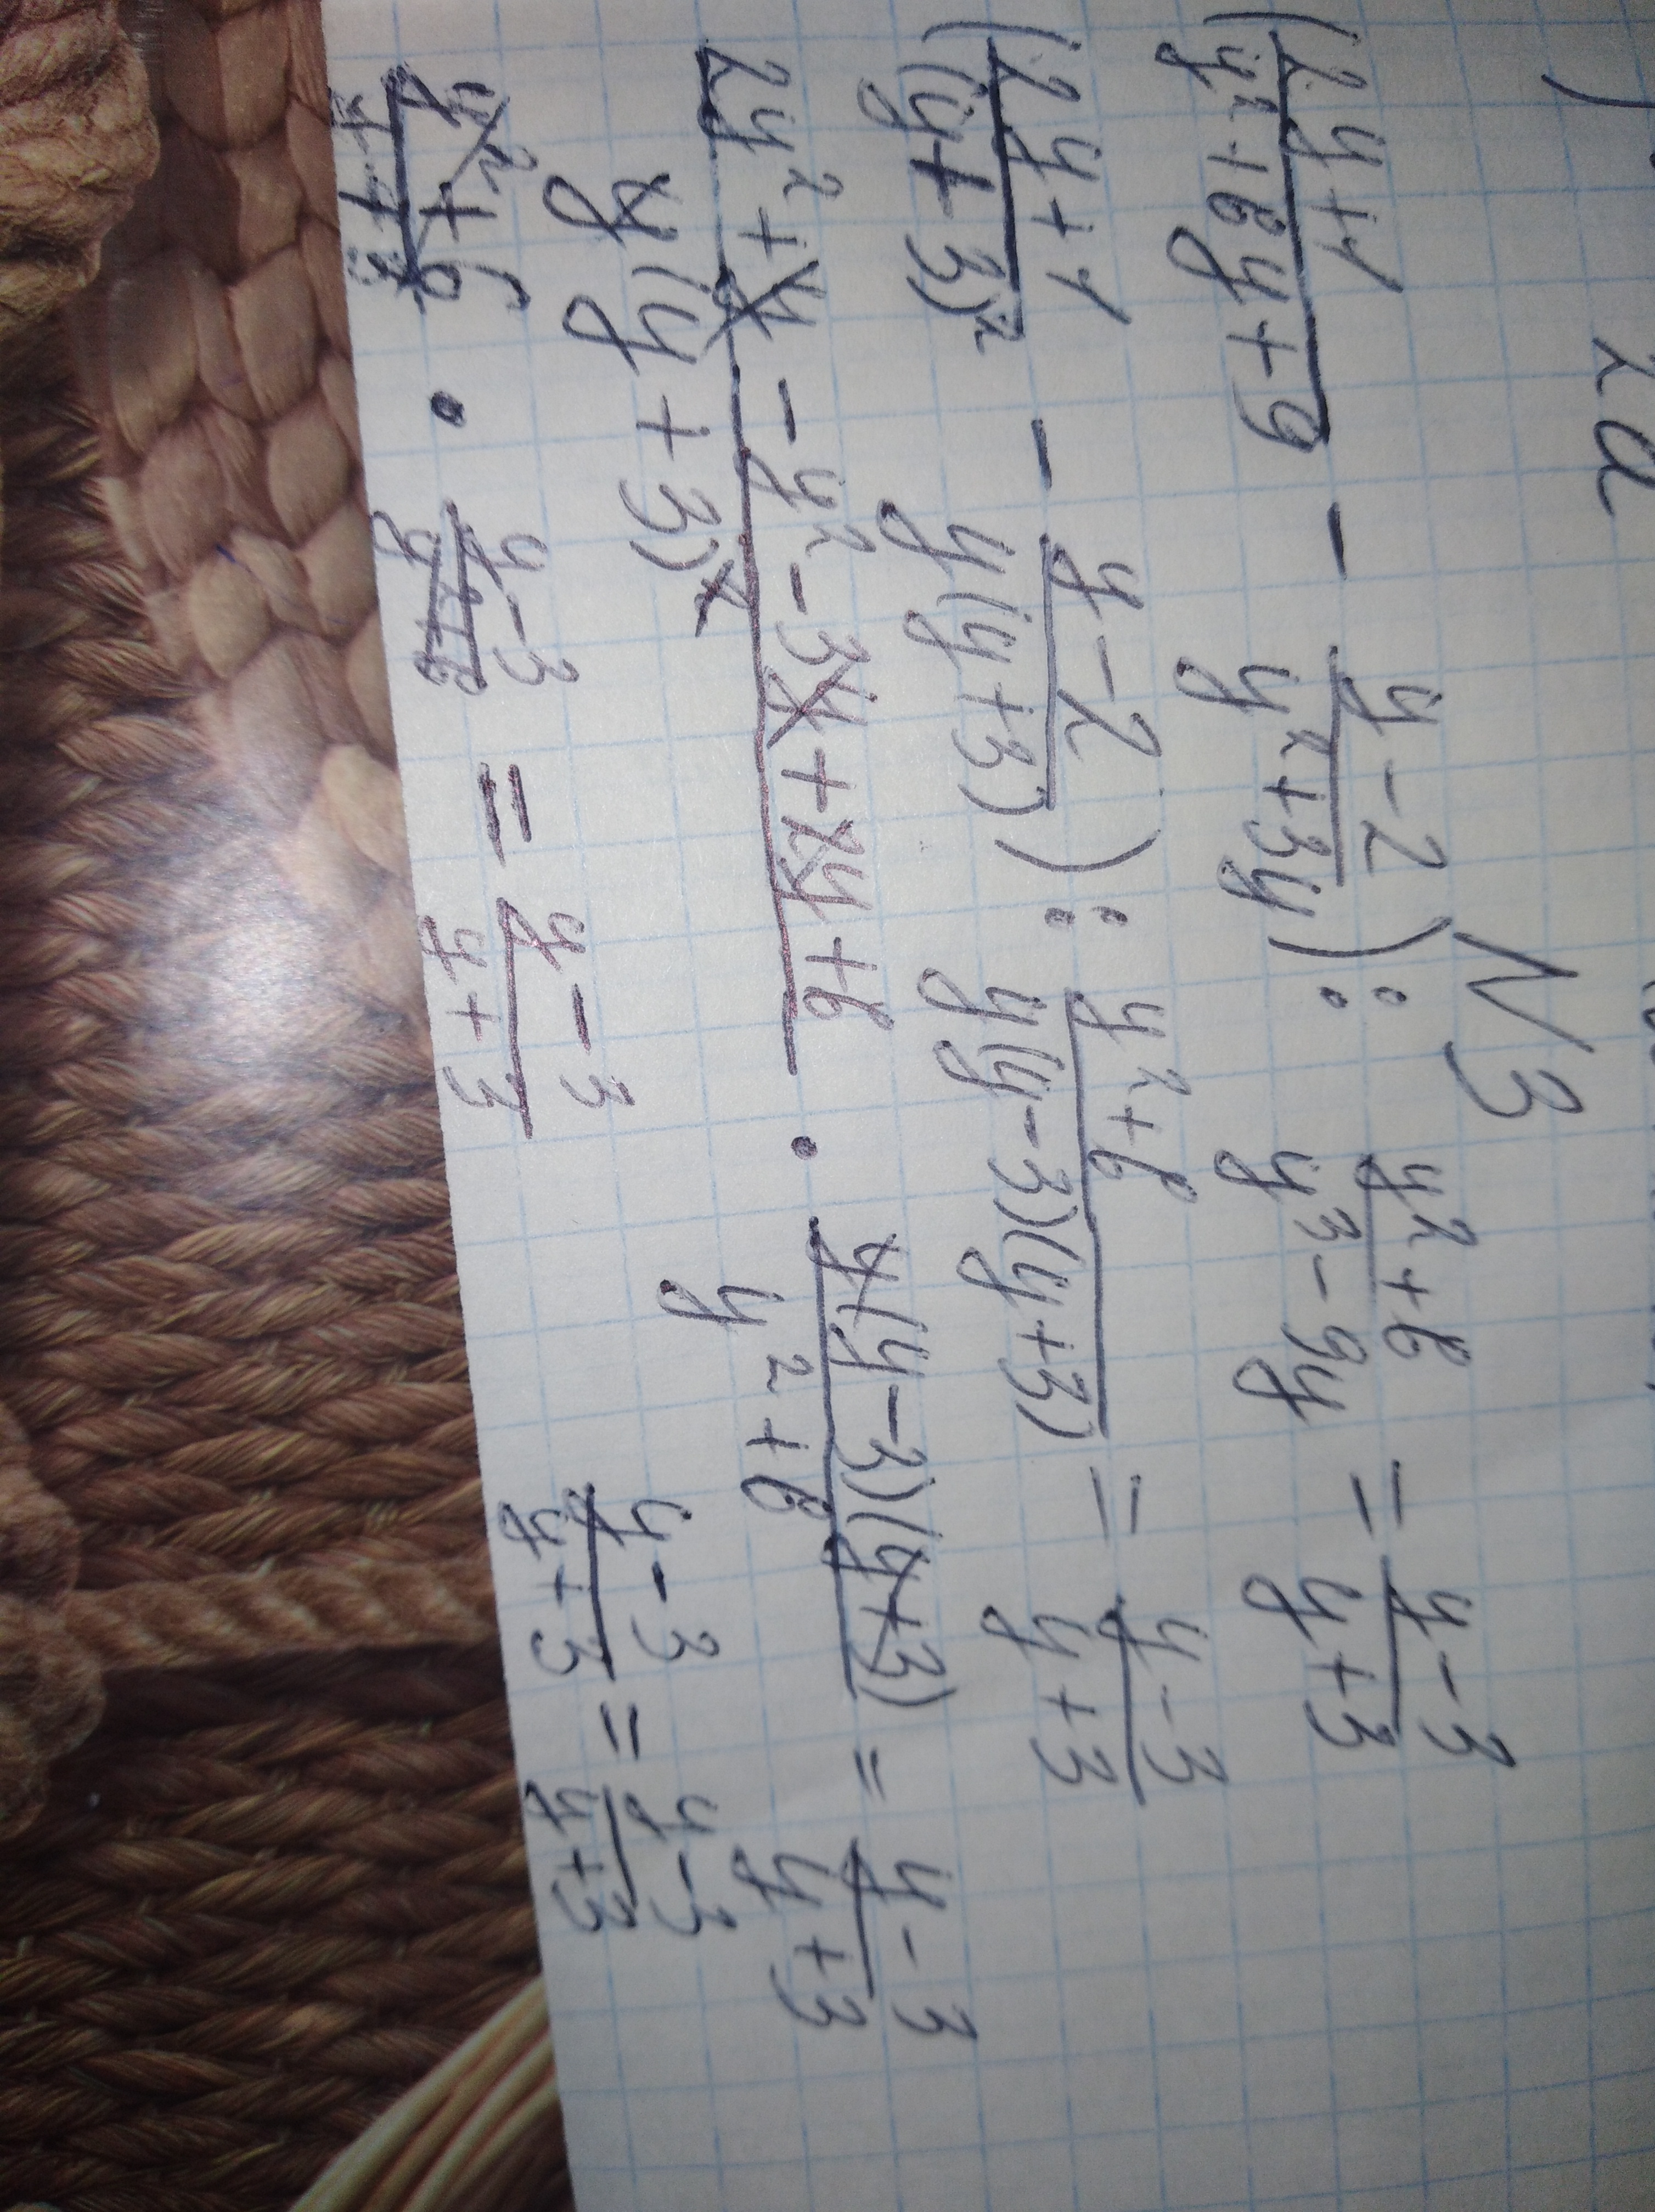 N3
(2y+1/y²+6y+9 - y-2/y²+3y) : y²+6/y³-9y = y-3/y+3
(2y+1/(y+3)² - y-2/y(y+3)) : y²+6/y(y-3)(y+3) = y-3/y+3
2y²+y-y²-3y+2y+6/y(y+3)² · y(y-3)(y+3)/y²+6 = y-3/y+3
y²+6/y+3 · y-3/y²+6 = y-3/y+3 y-3/y+3 = y-3/y+3